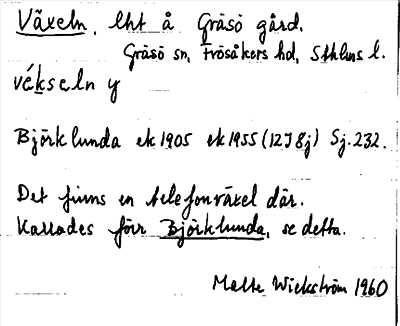 Växeln, lht å Gräsö gård.
Gräsö sn, Frösåkers hd, Sthlms l.
vékseln y
Björklunda ek 1905 ek 1955 (12J8j) Sj. 232.
Det finns en telefonväxel där.
Kallades förr Björklunda, se detta.
Malte Wickström 1960